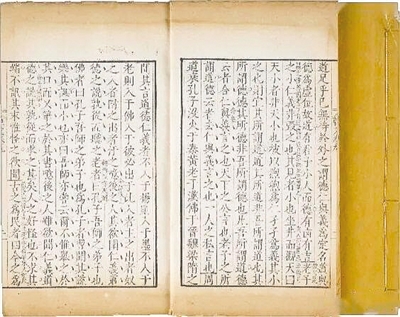 道足乎己無待於外之謂德仁與義為定名道與
德為虛位故道有君子小人而德有凶有吉老子
之小仁義非毀之也其見者小也坐井而觀天曰
天小者非天小也彼以煦煦為仁孑孑為義其小
之也則宜其所謂道道其所道非吾所謂道也其
所謂德德其所德非吾所謂德也凡吾所謂道德
云者合仁與義言之也天下之公言也老子之所
謂道德云者去仁與義言之也一人之私言也周
道衰孔子沒火于秦黃老于漢佛于晉魏梁隋之
間其言道德仁義者不入于楊則入于墨不入于
老則入于佛入于彼必出于此入者主之出者奴
之入者附之出者汙之噫後之人其欲聞仁義道
德之說孰從而聽之老者曰孔子吾師之弟子也
佛者曰孔子吾師之弟子也為孔子者習聞其說
樂其誕而自小也亦曰吾師亦嘗云爾不惟舉之於
其口而又筆之於其書噫後之人雖欲聞仁義道
德之說其孰從而求之甚矣人之好怪也不求其
端不訊其末惟怪之欲聞古之為民者四今之為